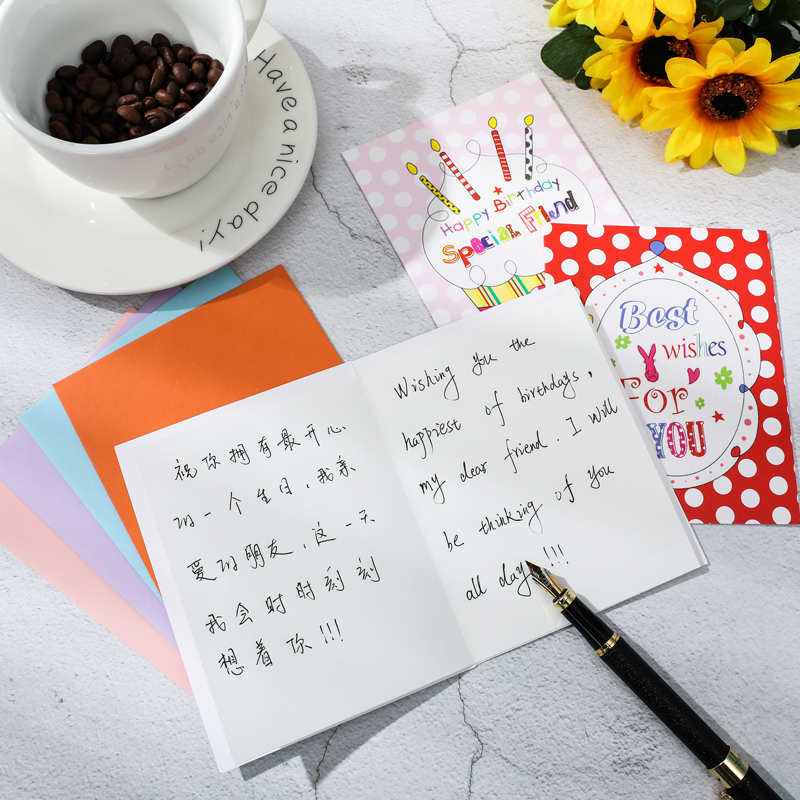 Have a nice day!
Happy Birthday
Special Friend
Best
wishes
For
YOU
祝你拥有最开心
的一个生日,我亲
爱的朋友,这一天
我会时时刻刻
想着你!!!
Wishing you the
happiest of birthdays,
my dear friend. I will
be thinking of you
all day !!!